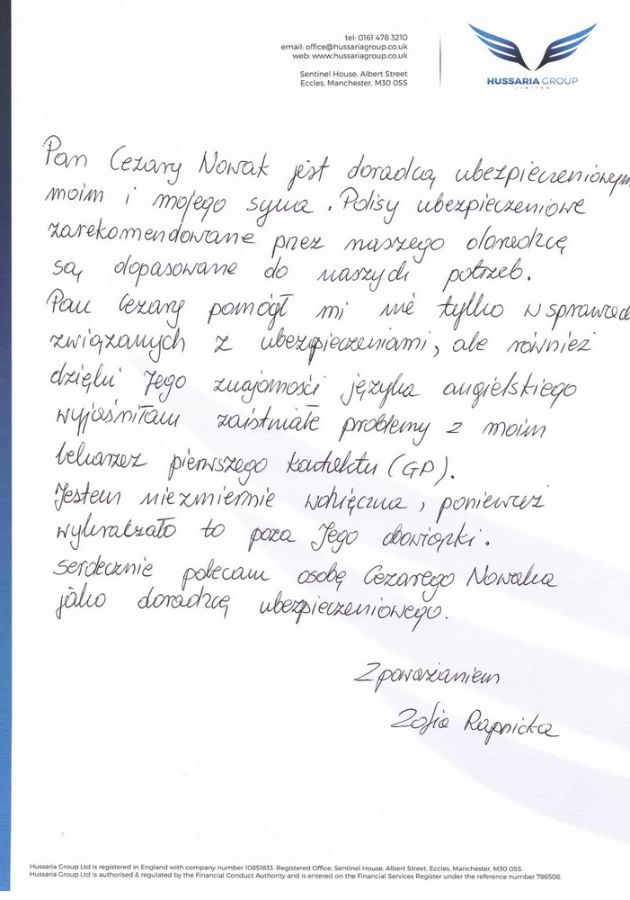 tel: 0161 478 3210
email: office@hussariagroup.co.uk
web: www.hussariagroup.co.uk
Sentinel House, Albert Street
Eccles, Manchester, M30 0SS
HUSSARIA GROUP
LIMITED
Pan Cezary Nowak jest doradcą ubezpieczeniowym
moim i mojego syna. Polisy ubezpieczeniowe
zarekomendowane przez naszego doradcę
są dopasowane do naszych potrzeb.
Pan Cezary pomógł mi nie tylko w sprawach
związanych z ubezpieczeniami, ale również
dzięki Jego znajomości języka angielskiego
wyjaśniłam zaistniałe problemy z moim
lekarzem pierwszego kontaktu (GP).
Jestem niezmiernie wdzięczna, ponieważ
wykraczało to poza Jego obowiązki.
Serdecznie polecam osobę Cezarego Nowaka
jako doradcę ubezpieczeniowego.
Z poważaniem
Zofia Rapnicka
Hussaria Group Ltd is registered in England with company number 10851833. Registered Office: Sentinel House, Albert Street, Eccles, Manchester, M30 0SS.
Hussaria Group Ltd is authorised & regulated by the Financial Conduct Authority and is entered on the Financial Services Register under the reference number 786506.